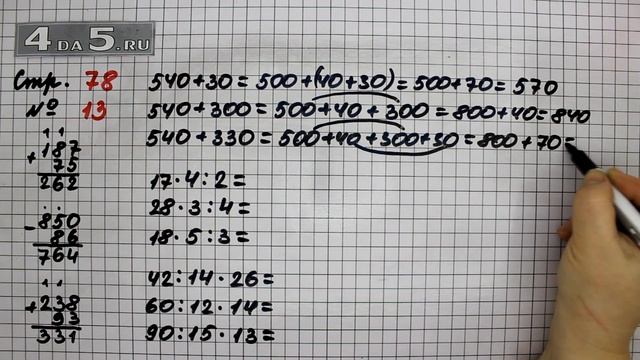 4 DA 5.RU
Стр. 78
№ 13
187
+ 75
262
- 850
86
764
+ 238
93
331
540+30=500+(40+30)=500+70=570
540+300=500+40+300=800+40=840
540+330=500+40+300+30=800+70=
17·4:2=
28·3:4=
18·5:3=
42:14·26=
60:12·14=
90:15·13=